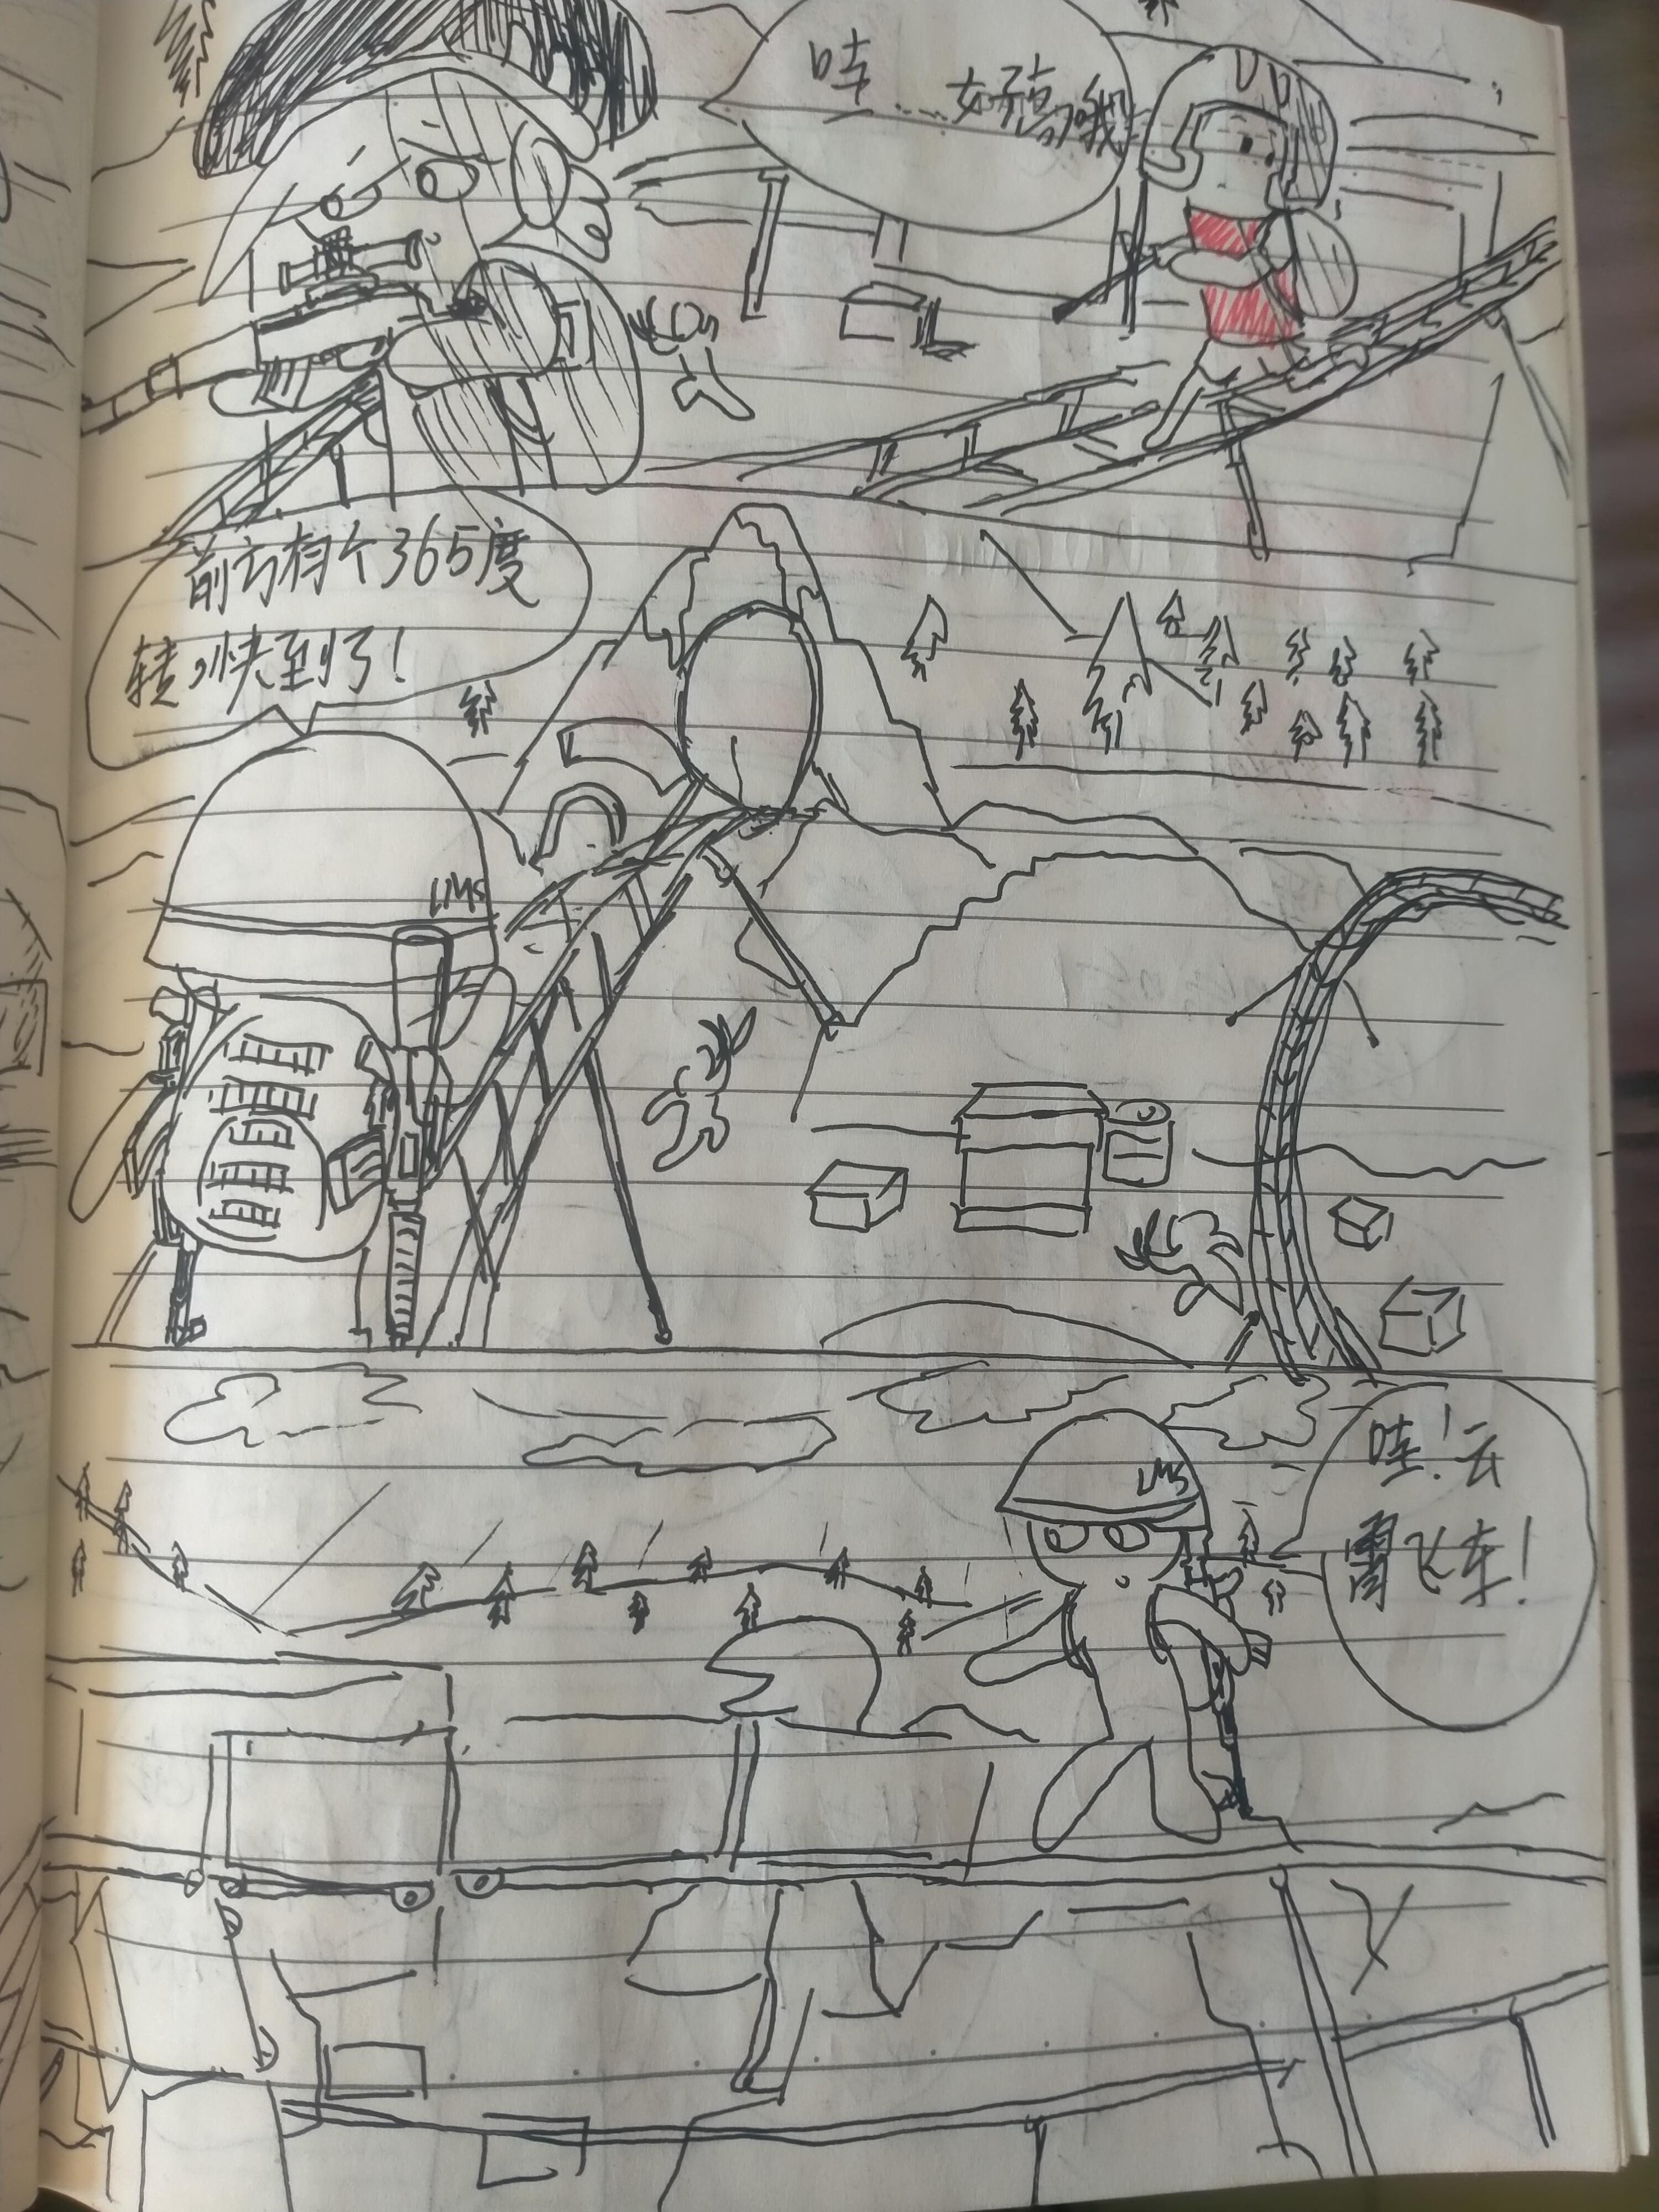 哇......好高哦
前方有个365度
转,快到了!
LMS
哇!云
霄飞车!
LMS